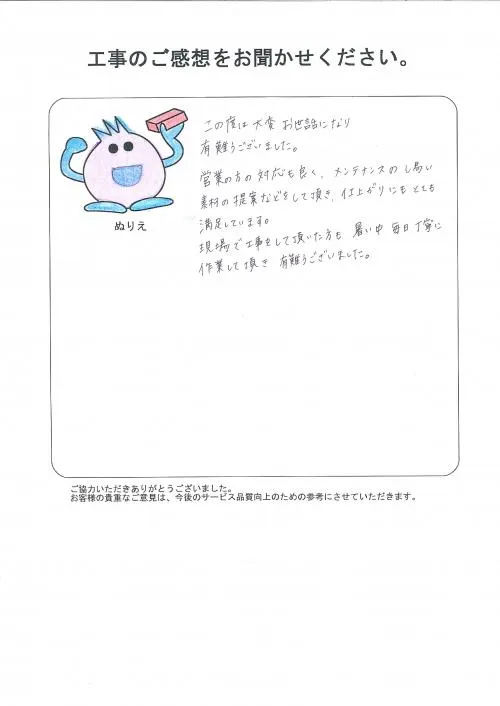 工事のご感想をお聞かせください。
この度は大変お世話になり
有難うございました。
営業の方の対応も良く、メンテナンスのし易い
素材の提案などをして頂き、仕上がりにもとても
満足しています。
現場で工事をして頂いた方も 暑い中 毎日 丁寧に
作業して頂き 有難うございました。
ぬりえ
ご協力いただきありがとうございました。
お客様の貴重なご意見は、今後のサービス品質向上のための参考にさせていただきます。